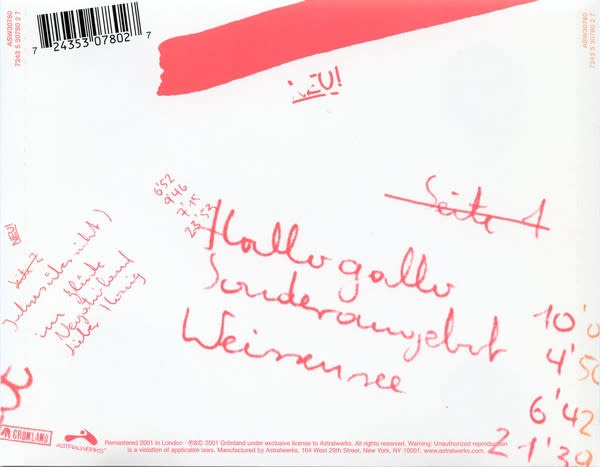 ASW30780
7243 5 30780 2 7
7 24353 07802 7
NEU!
ASW30780
7243 5 30780 2 7
Seite 1
Hallogallo
Sonderangebot
Weissensee
10'0
4'50
6'42
21'39
6'52
9'46
7'15
23'53
NEU!
Seite 2
Jahresübersicht)
im Glück
Negativland
Lieber Honig
GRÖNLAND
ASTRALWERKS
Remastered 2001 in London · ℗&© 2001 Grönland under exclusive license to Astralwerks. All rights reserved. Warning: Unauthorized reproduction
is a violation of applicable laws. Manufactured by Astralwerks, 104 West 29th Street, New York, NY 10001. www.astralwerks.com